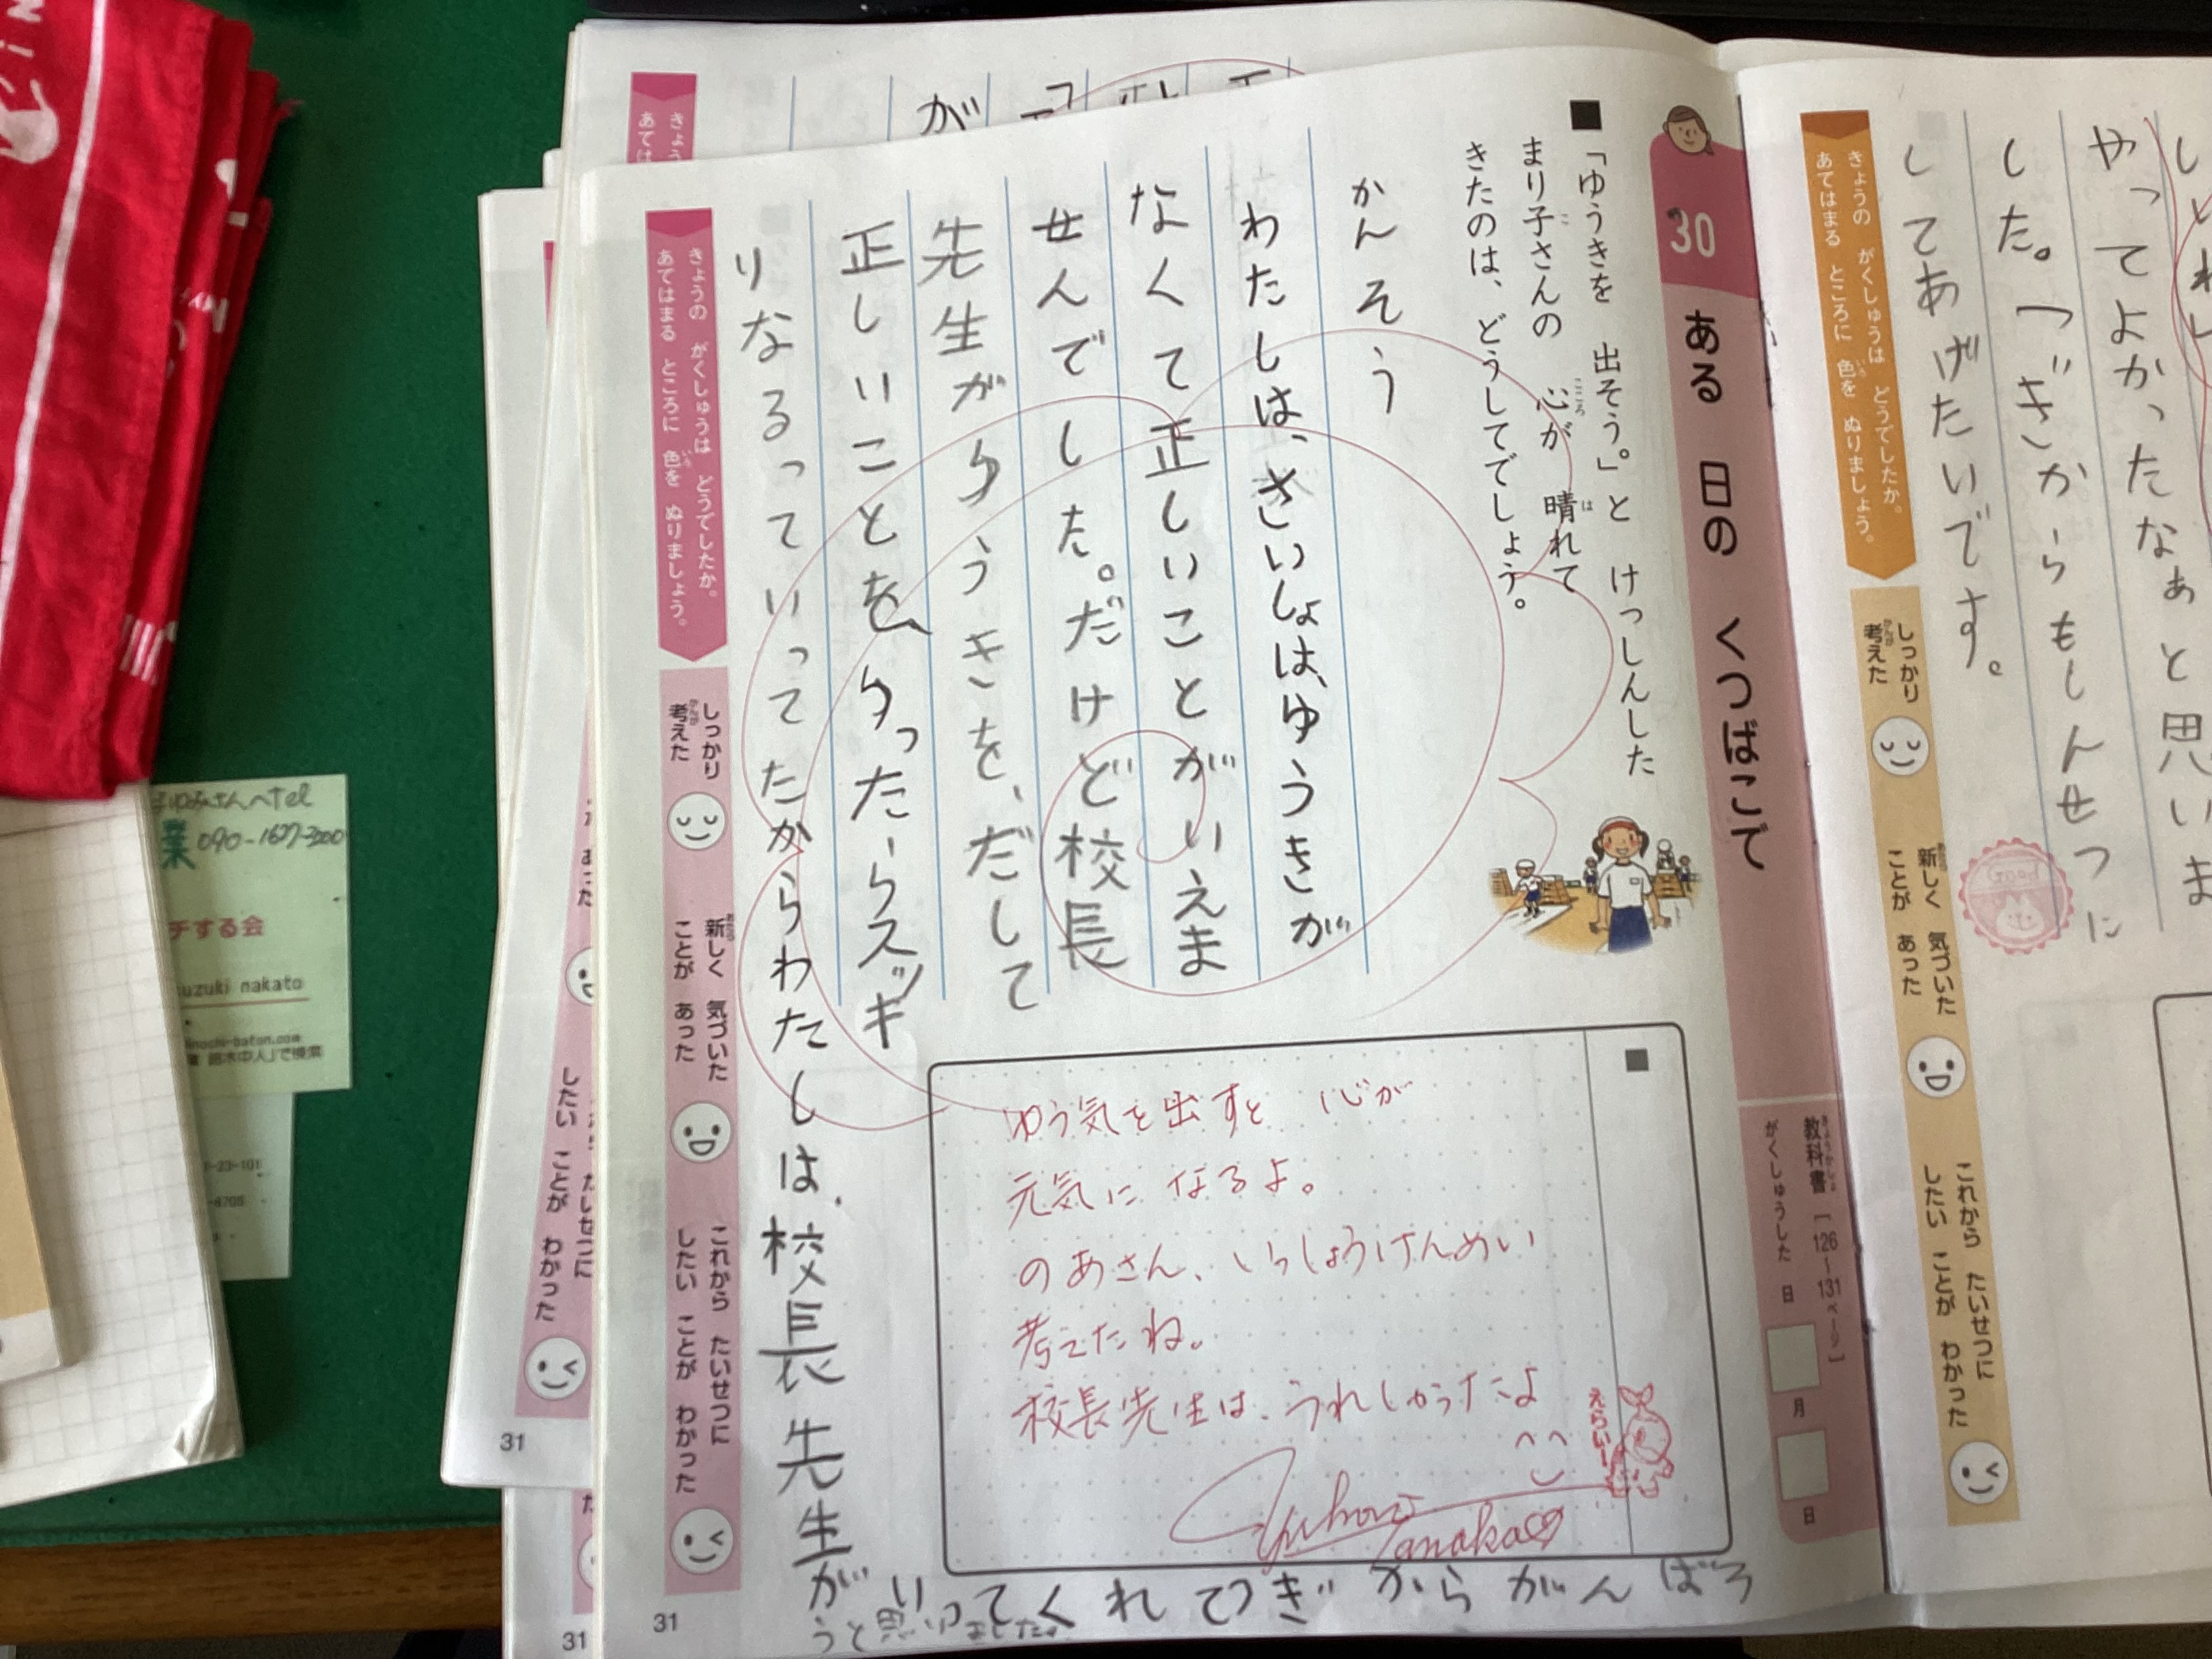 30
ある 日の くつばこで
■「ゆうきを 出そう。」と けっしんした
まり子さんの 心が 晴れて
きたのは、どうしてでしょう。
かんそう
わたしは、さいしょは、ゆうきが
なくて正しいことがいえま
せんでした。だけど校長
先生がゆうきを、だして
正しいことを、ゆったらスッキ
りなるっていってたからわたしは、校長先生が
いってくれてつぎからがんばろ
うと思いました。
ゆう気を出すと 心が
元気に なるよ。
のあさん、いっしょうけんめい
考えたね。
校長先生は、うれしかったよ
Tanaka
えらいー
教科書[126~131ページ]
がくしゅうした 日
月
日
きょうの がくしゅうは どうでしたか。
あてはまる ところに 色を ぬりましょう。
しっかり
考えた
新しく 気づいた
ことが あった
これから たいせつに
したい ことが わかった
31
やってよかったなぁと思いま
した。つぎからもしんせつに
してあげたいです。
Good
きょうの がくしゅうは どうでしたか。
あてはまる ところに 色を ぬりましょう。
しっかり
考えた
新しく 気づいた
ことが あった
これから たいせつに
したい ことが わかった
が
したい ことが わかった
31
31
さんへTel
業 090-1627-2000
チする会
suzuki nakato
inochi-baton.com
で検索
-23-101
-8705